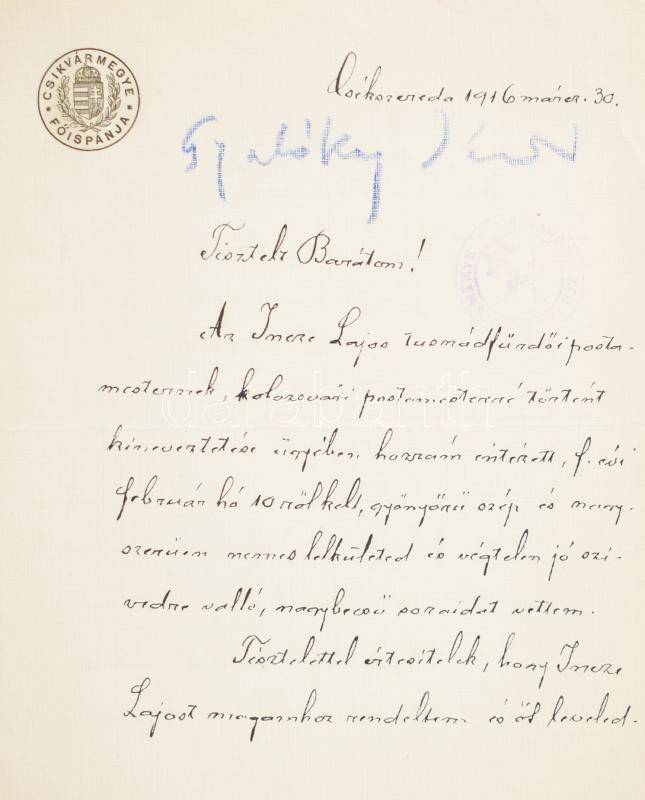 CSIKVÁRMEGYE FŐISPÁNJA
Csikszereda 1916 márcz. 30.
Gyalókay
Tisztelt Barátom!
Az Incze Lajos tusnádfürdői posta-
mesternek, kolozsvári postamesterré történt
kineveztetése ügyében hozzám intézett, f. évi
február hó 10 ről kelt, gyönyörü szép és nagy-
szerüen nemes lelkületed és végtelen jó szi-
vedre valló, nagybecsü soraidat vettem.
Tisztelettel értesitelek, hogy Incze
Lajost magamhoz rendeltem és őt leveled-
darabanth